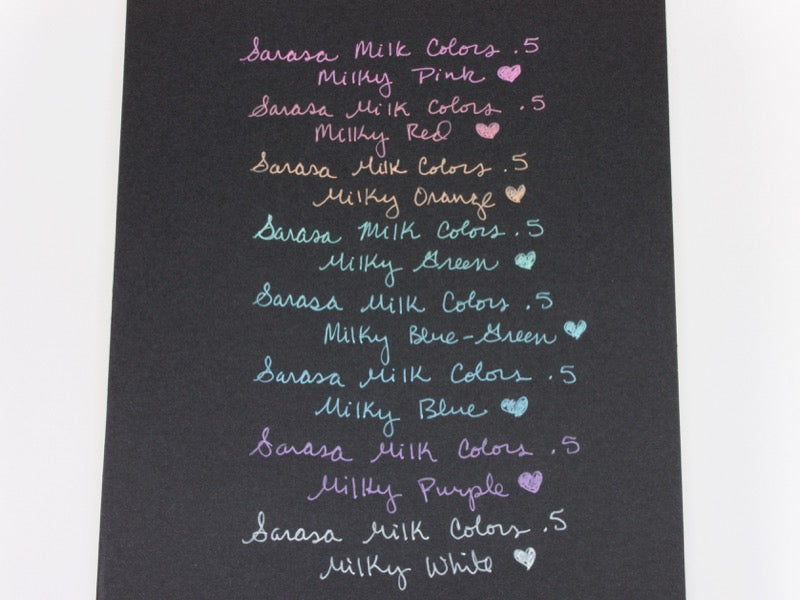 Sarasa Milk Colors .5
Milky Pink
Sarasa Milk Colors .5
Milky Red
Sarasa Milk Colors .5
Milky Orange
Sarasa Milk Colors .5
Milky Green
Sarasa Milk Colors .5
Milky Blue-Green
Sarasa Milk Colors .5
Milky Blue
Sarasa Milk Colors .5
Milky Purple
Sarasa Milk Colors .5
Milky White